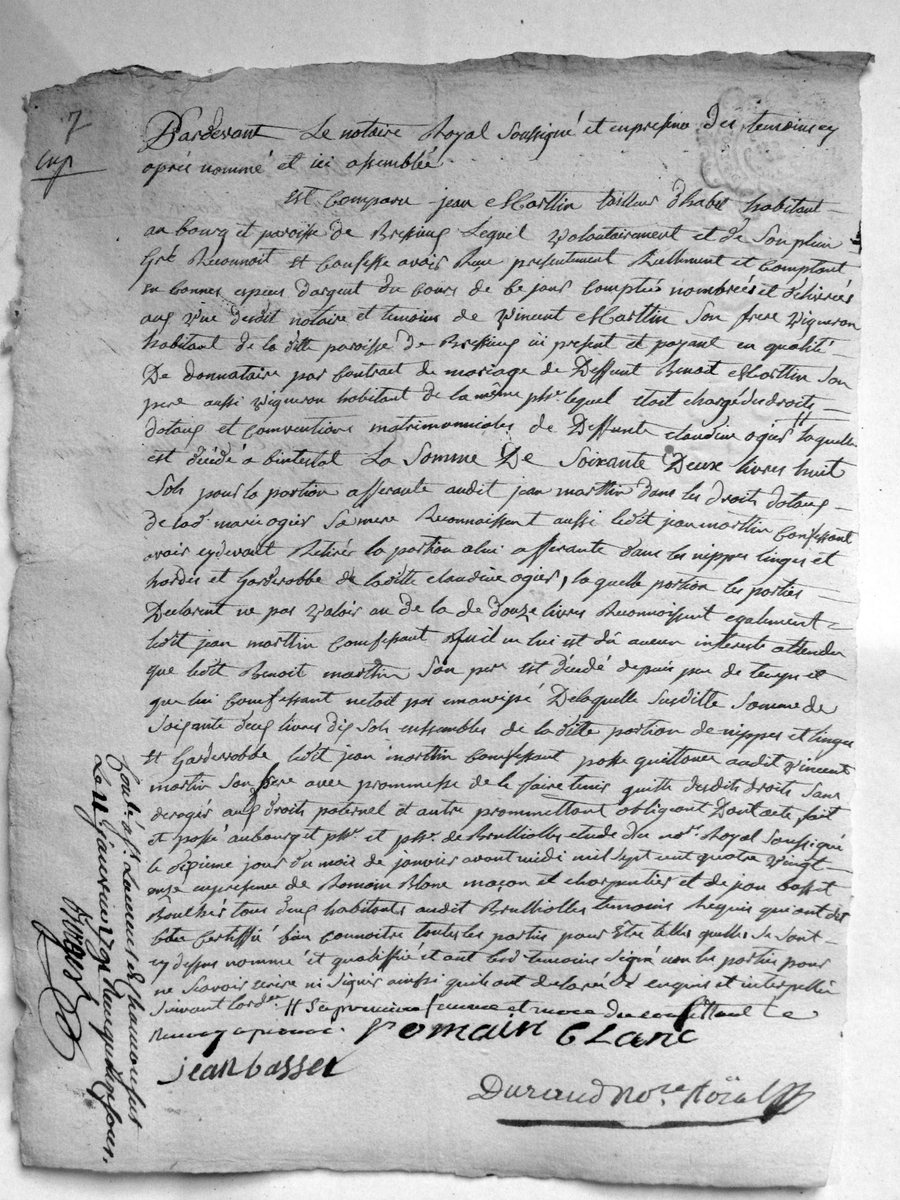 7
Exp
Pardevant Le notaire Royal soussigné et en presence des temoins cy
après nommé et ici assemblée
est Comparu jean Marttin tailleur d'habit habitant
au bourg et paroisse de Lequel volontairement et de son plein
gré Reconnoit et Confesse avoir Reçu presentement Reellement et Comptant
en bonnes especes d'argent du Cours de ce jour Comptées nombrées et délivrées
aux vue dudit notaire et temoins de Vincent Marttin son frere vigneron
habitant de la ditte paroisse de ici present et payant en qualité
De donnataire par Contrat de mariage de Deffunt Benoit Marttin son
pere aussi vigneron habitant de la même psse lequel etoit chargé des droits
dotaux et Conventions matrimonniales de Deffunte claudine ogier // laquelle
est décédé abintestat La Somme De Soixante Deux livres huit
Sols pour la portion afferante audit jean marttin dans les droits dotaux
de lad. marie ogier Sa mere Reconnaissent aussi ledit jean marttin Confessant
avoir cydevant Retiré la portion a lui afferante dans les nippes linges et
hardes et Garderobbe de laditte claudine ogier, laquelle portion les parties
Declarent ne pas valoir au de la de douze livres Reconnoissent egalement
ledit jean marttin Confessant qu'il ne lui est dû aucun interets attendu
que ledit Benoit marttin Son pere est décédé depuis peu de temps et
que lui Confessant netoit pas emancipé Delaquelle Susditte Somme de
Soixante deux livres dix Sols ensembles de laditte portion de nippes et linges
et Garderobbe ledit jean marttin Confessant passe quittance audit vincent
martin son frere avec prommesse de le faire tenir quitte desdits droits Sans
deroger aux droits paternel et autre prommettant obligeant Dont acte fait
et passé au bourg et psse de Brulliolles etude du nore Royal Soussigné
le dixieme jour du mois de janvier avant midi mil Sept cent quatre vingt
onze en presence de Romain Blanc maçon et charpentier et de jean basset
tous deux habitants audit Brulliolles temoins Requis qui ont
Certiffié bien connoitre toutes les parties pour être telles quelles se sont
cy dessus nommé et qualiffié et ont lesd temoins Signé non les parties pour
ne Scavoir ecrire ni Signer ainsi quils ont declaré de enquis et interpellé
Suivant lordce // Sa premiere femme et mere du confessant
Romain blanc
jean basset
Durand Nore Roïal
Conlé à St Laurent de Chamousset
Le janvier 1791 Reçu quinze sous.